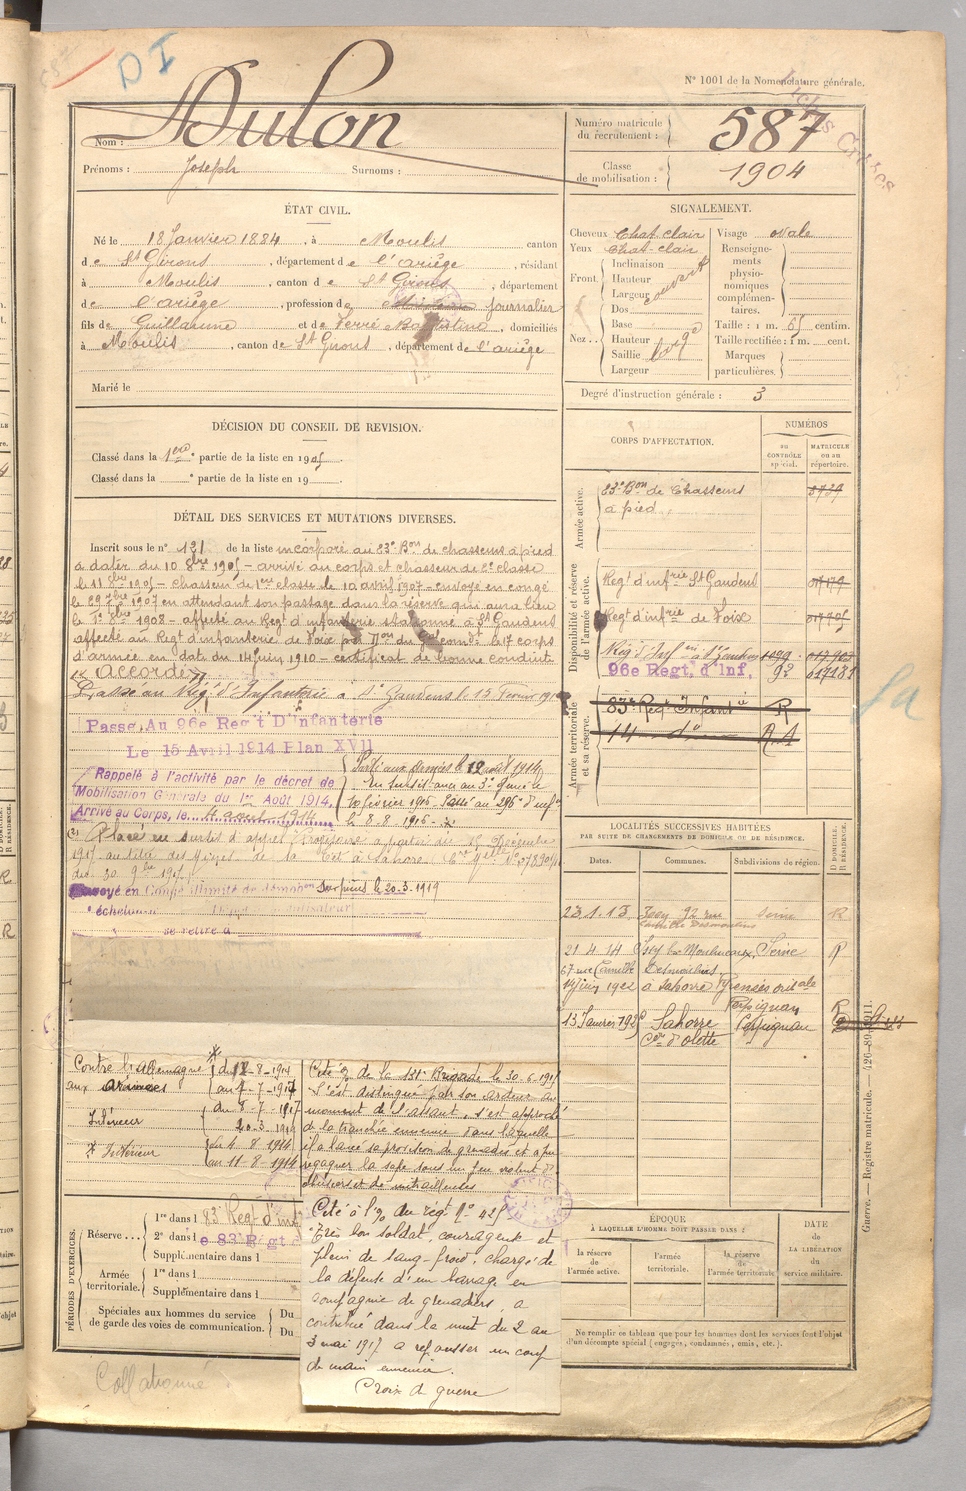 DI
N° 1001 de la Nomenclature générale.
Nom : Dulon
Prénoms : Joseph Surnoms :
Numéro matricule du recrutement : 587
Classe de mobilisation : 1904
ÉTAT CIVIL.
Né le 18 Janvier 1884, à Moulis canton
de St Girons, département de l'ariège, résidant
à Moulis, canton de St Girons, département
de l'ariège, profession de journalier
fils de Guillaume et de Ferré Baptistine, domiciliés
à Moulis, canton de St Girons, département de l'ariège
Marié le
SIGNALEMENT.
Cheveux chat. clair
Yeux chat. clair
Front. Inclinaison
Hauteur
Largeur
couvert
Nez. Dos
Base
Hauteur
Saillie
Largeur
large
Visage ovale
Renseignements physionomiques complémentaires.
Taille : 1 m. 65 centim.
Taille rectifiée : 1 m. cent.
Marques particulières.
Degré d'instruction générale : 3
DÉCISION DU CONSEIL DE REVISION.
Classé dans la 1ère partie de la liste en 1905
Classé dans la partie de la liste en 19
DÉTAIL DES SERVICES ET MUTATIONS DIVERSES.
Inscrit sous le n° 121 de la liste incorporé au 23e Bon de chasseurs à pied
à dater du 10 8bre 1905 - arrivé au corps et chasseur de 2e classe
le 11 8bre 1905 - chasseur de 1ere classe le 10 avril 1907 - envoyé en congé
le 29 7bre 1907 en attendant son passage dans la réserve qui aura lieu
le 1er 8bre 1908 - affecté au Régt d'infanterie stationné à St Gaudens
affecté au Régt d'infanterie de Foix par Don du Gal comdt le 17 corps
d'armée en date du 14 juin 1910 - certificat de bonne conduite
"accordé"
Passé au Régt d'Infanterie à St Gaudens le 15 février
Passé Au 96e Reg't D'Infanterie
Le 15 Avril 1914 Plan XVII
Rappelé à l'activité par le décret de
Mobilisation Générale du 1er Août 1914.
Arrivé au Corps, le 4 août 1914
Parti aux armées le 12 août 1914
10 février 1916 - Passé au 296e d'inf
le 8-8-1916
Placé en sursis d'appel
1917 au titre des forges de la à Sahorre
du 30 9bre 1917
Envoyé en Congé illimité de démobon le 20-3-1919
échelon
se retire à
CORPS D'AFFECTATION.
NUMÉROS
AU CONTRÔLE spécial.
MATRICULE ou au répertoire.
Armée active.
23e Bon de Chasseurs
à pied
Disponibilité et réserve de l'armée active.
Régt d'infrie St Gaudens
Régt d'infrie de Foix
Rég d'Infrie St Gaudens
96e Regt, d'Inf.
Armée territoriale et sa réserve.
83e Régt Infantie R
14 do RA
LOCALITÉS SUCCESSIVES HABITÉES
PAR SUITE DE CHANGEMENTS DE DOMICILE OU DE RÉSIDENCE.
Dates. Communes. Subdivisions de région. D DOMICILE. R RÉSIDENCE.
23.1.13 Issy 92 rue Seine R
Camille Desmoulins
21 4 14 Issy les Moulineaux, Seine R
67 rue Camille Desmoulins
14 juin 1922 à Sahorre Pyrénées ortales
Perpignan
Sahorre Perpignan
Con d'Olette
Contre l'allemagne du 12-8-1914
aux armées au 7-7-1917
Intérieur du 8-7-1917
20-3-1919
Intérieur du 4 8 1914
au 11-8-1914
Cité à de la 131e Brigade le 30-6-1915
S'est distingué par son ardeur au
moment de l'assaut, s'est approché
de la tranchée ennemie dans laquelle
il a lancé sa provision de grenades et a pu
regagner la sape sous un feu violent d'
obusiers et de mitrailleuses
Cité à l'% du rég. No 425
Très bon soldat, courageux et
plein de sang-froid, chargé de
la défense d'un barrage en
compagnie de grenadiers, a
contribué dans la nuit du 2 au
3 mai 1917 à repousser un coup
de main ennemi.
Croix de guerre
PÉRIODES D'EXERCICES.
Réserve... 1re dans l 83e Régt d'inf
2e dans l e 83e Régt d
Supplémentaire dans l
Armée territoriale. 1re dans l
Supplémentaire dans l
Spéciales aux hommes du service de garde des voies de communication. Du
Du
ÉPOQUE
À LAQUELLE L'HOMME DOIT PASSER DANS :
la réserve de l'armée active.
l'armée territoriale.
la réserve de l'armée territoriale
DATE de LA LIBÉRATION du service militaire.
Ne remplir ce tableau que pour les hommes dont les services font l'objet
d'un décompte spécial (engagés, condamnés, omis, etc.).
Guerre. — Registre matricule. — 426-89-1911.
Collationné